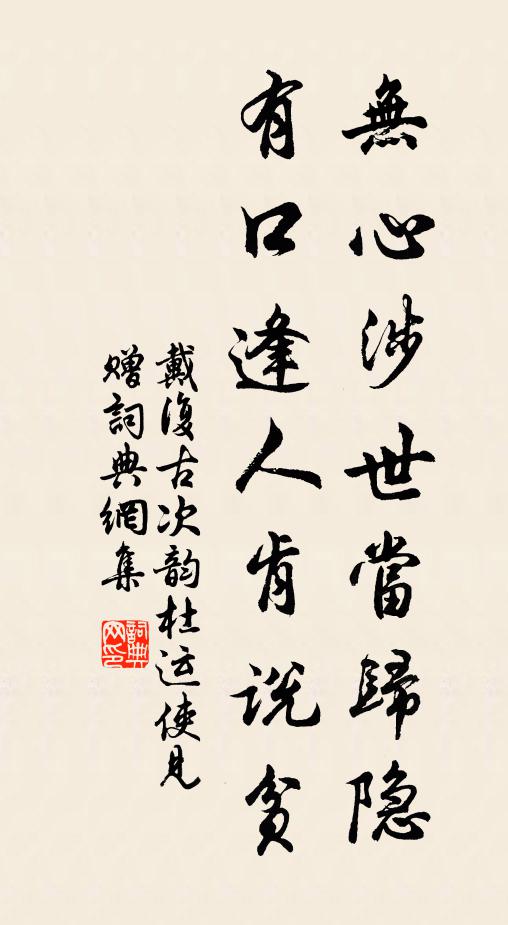 無心涉世當歸隐
有口逢人肯説貧
戴復古次韵杜运使見
赠詞典網集
詞典网印